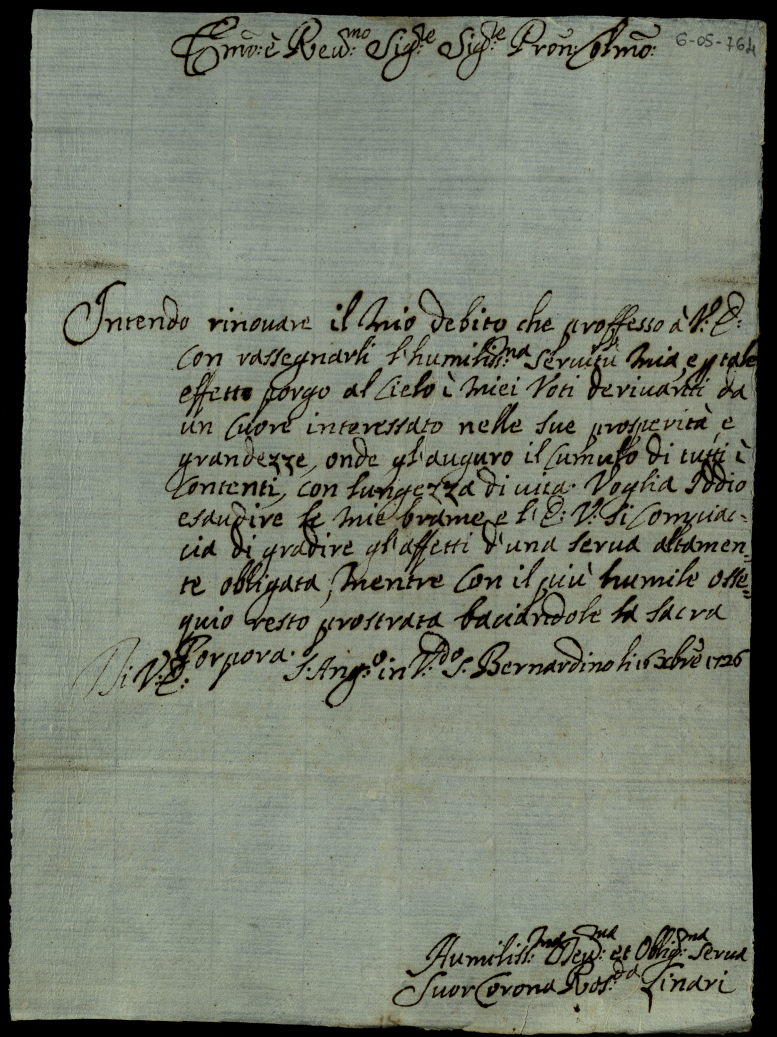 Emo: è Reu:mo Sig:re Sig:re Pron: Colmo:
6-05-764
Intendo rinouare il Mio debito che proffesso à V: E:
Con rassegnarli l'humiliss:ma Seruitù Mia, e p tale
effetto porgo al Cielo i Miei Voti deriuanti da
un Cuore interessato nelle sue prosperità, e
grandezze, onde gl'auguro il Cumulo di tutti i
Contenti, con lungezza di uita. Voglia Iddio
esaudire le Mie brame, e l'E: V: Si Compiac-
cia di gradire gl'affetti d'una serua altamen-
te obligata, Mentre Con il più humile osse-
quio resto prostrata baciandole la Sacra
Porpora.
Di V: E: S: Ang:o in V:do S: Bernardino li 16 Xbre 1726
Humiliss:ma Deu:ma et Oblig:ma Serua
Suor Corona Linari